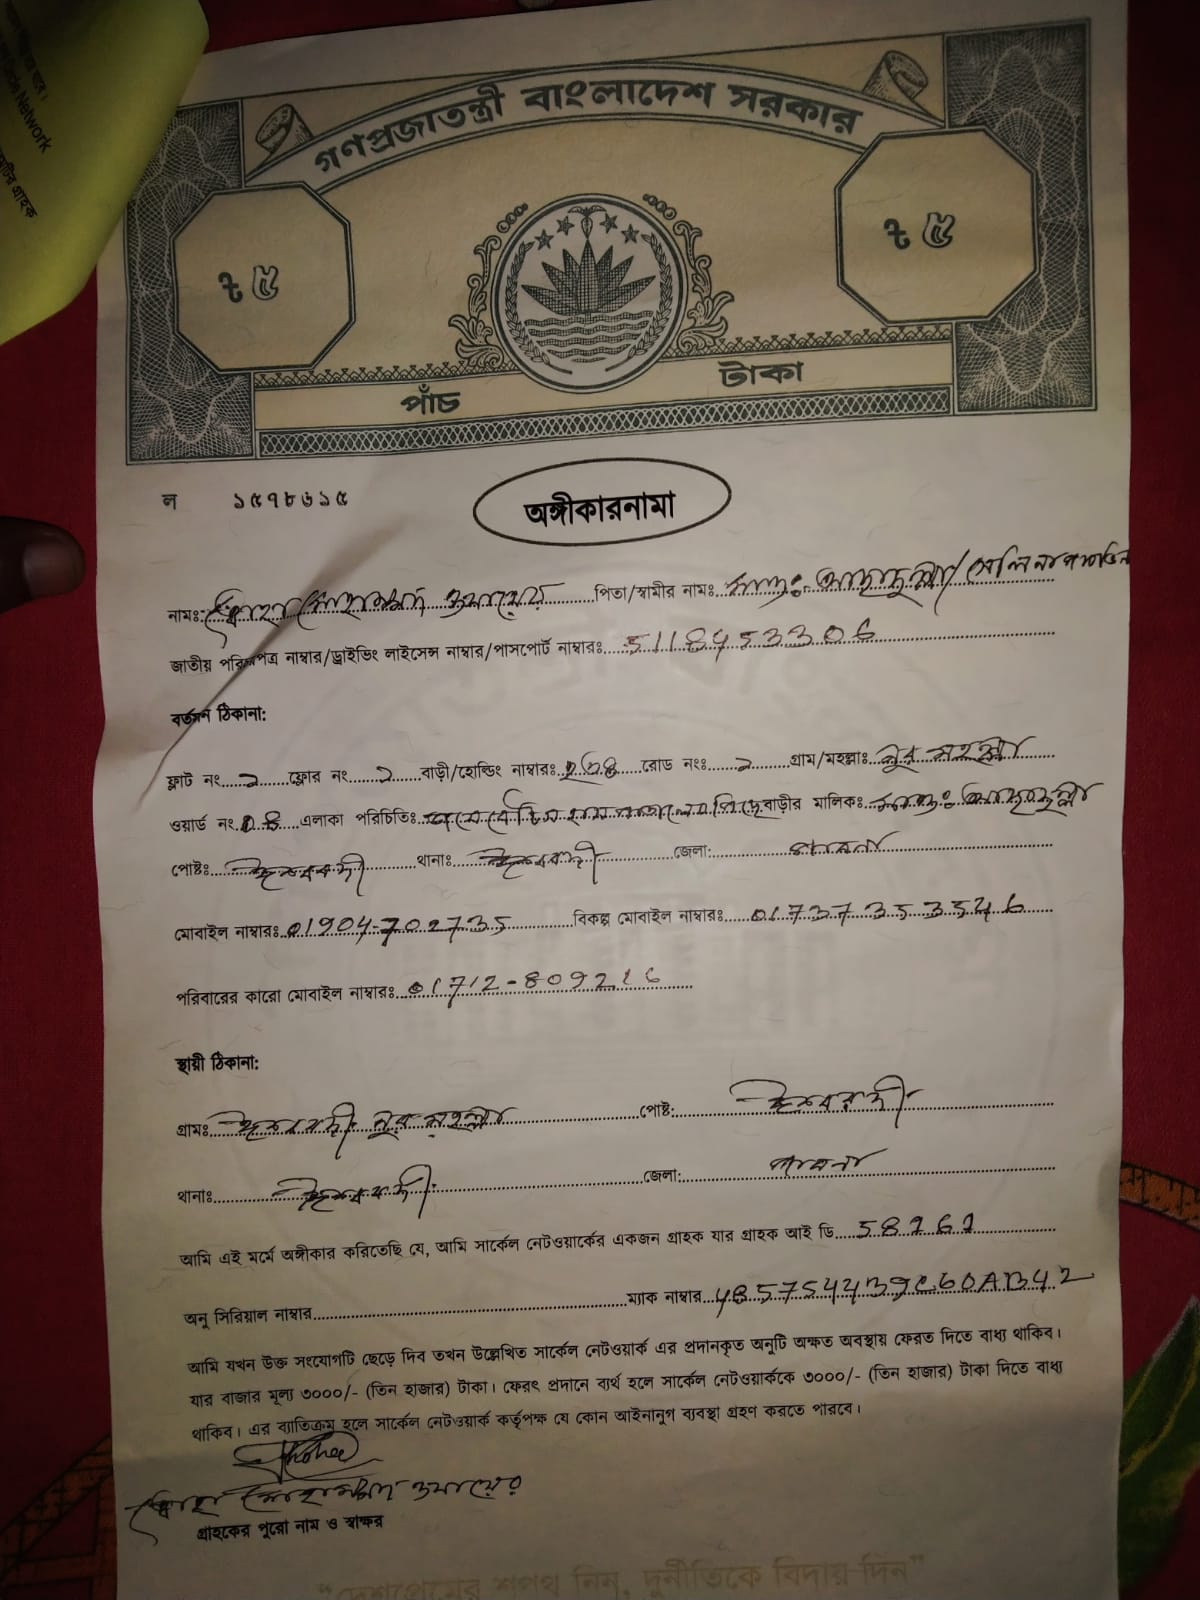 গণপ্রজাতন্ত্রী বাংলাদেশ সরকার
৳ ৫ ৳ ৫
পাঁচ টাকা
ল ১৫৭৮৬১৫
অঙ্গীকারনামা
নামঃ মোহাম্মদ পিতা/স্বামীর নামঃ
জাতীয় পরিচয়পত্র নাম্বার/ড্রাইভিং লাইসেন্স নাম্বার/পাসপোর্ট নাম্বারঃ 5118453306
বর্তমান ঠিকানা:
ফ্লাট নং ফ্লোর নং বাড়ী/হোল্ডিং নাম্বারঃ রোড নংঃ গ্রাম/মহল্লাঃ নূর মহল্লা
ওয়ার্ড নং 08 এলাকা পরিচিতিঃ বাড়ীর মালিকঃ
পোষ্টঃ ঈশ্বরদী থানাঃ ঈশ্বরদী জেলা: পাবনা
মোবাইল নাম্বারঃ 01904-702735 বিকল্প মোবাইল নাম্বারঃ 01737353546
পরিবারের কারো মোবাইল নাম্বারঃ 01712-809216
স্থায়ী ঠিকানা:
গ্রামঃ ঈশ্বরদী নূর মহল্লা পোষ্ট: ঈশ্বরদী
থানাঃ ঈশ্বরদী জেলা: পাবনা
আমি এই মর্মে অঙ্গীকার করিতেছি যে, আমি সার্কেল নেটওয়ার্কের একজন গ্রাহক যার গ্রাহক আই ডি
অনু সিরিয়াল নাম্বার ম্যাক নাম্বার
আমি যখন উক্ত সংযোগটি ছেড়ে দিব তখন উল্লেখিত সার্কেল নেটওয়ার্ক এর প্রদানকৃত অনুটি অক্ষত অবস্থায় ফেরত দিতে বাধ্য থাকিব।
যার বাজার মূল্য ৩০০০/- (তিন হাজার) টাকা। ফেরৎ প্রদানে ব্যর্থ হলে সার্কেল নেটওয়ার্ককে ৩০০০/- (তিন হাজার) টাকা দিতে বাধ্য
থাকিব। এর ব্যতিক্রম হলে সার্কেল নেটওয়ার্ক কর্তৃপক্ষ যে কোন আইনানুগ ব্যবস্থা গ্রহণ করতে পারবে।
গ্রাহকের পুরো নাম ও স্বাক্ষর
"দেশপ্রেমের শপথ নিন, দুর্নীতিকে বিদায় দিন"
Network
গ্রাহক